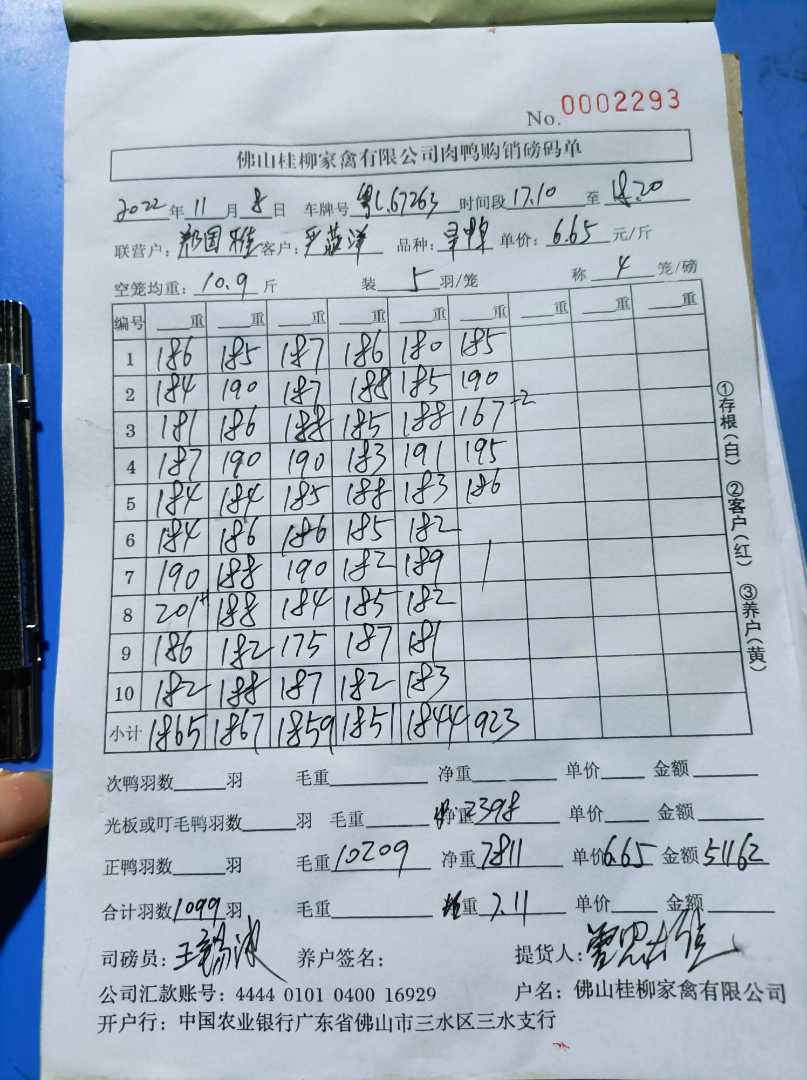 No. 0002293
佛山桂柳家禽有限公司肉鸭购销磅码单
2022年11月8日 车牌号 粤L.67263 时间段 17.10 至 18.20
联营户: 郑国雄 客户: 严蓝洋 品种: 单价: 6.65 元/斤
空笼均重: 10.9 斤 装 5 羽/笼 称 4 笼/磅
编号 重 重 重 重 重 重 重 重 重
1 186 185 187 186 180 185
2 184 190 187 188 185 190
3 181 186 188 185 188 167 -2
4 187 190 190 183 191 195
5 184 184 185 188 183 186
6 184 186 186 185 182
7 190 188 190 182 189
8 201 188 184 185 182
9 186 182 175 187 181
10 182 188 187 182 183
小计 1865 1867 1859 1851 1844 923
①存根(白) ②客户(红) ③养户(黄)
次鸭羽数 羽 毛重 净重 单价 金额
光板或叮毛鸭羽数 羽 毛重 净重 2398 单价 金额
正鸭羽数 羽 毛重 10209 净重 7811 单价 6.65 金额 51162
合计羽数 1099 羽 毛重 重 7.11 单价 金额
司磅员: 养户签名: 提货人:
公司汇款账号: 4444 0101 0400 16929 户名: 佛山桂柳家禽有限公司
开户行: 中国农业银行广东省佛山市三水区三水支行